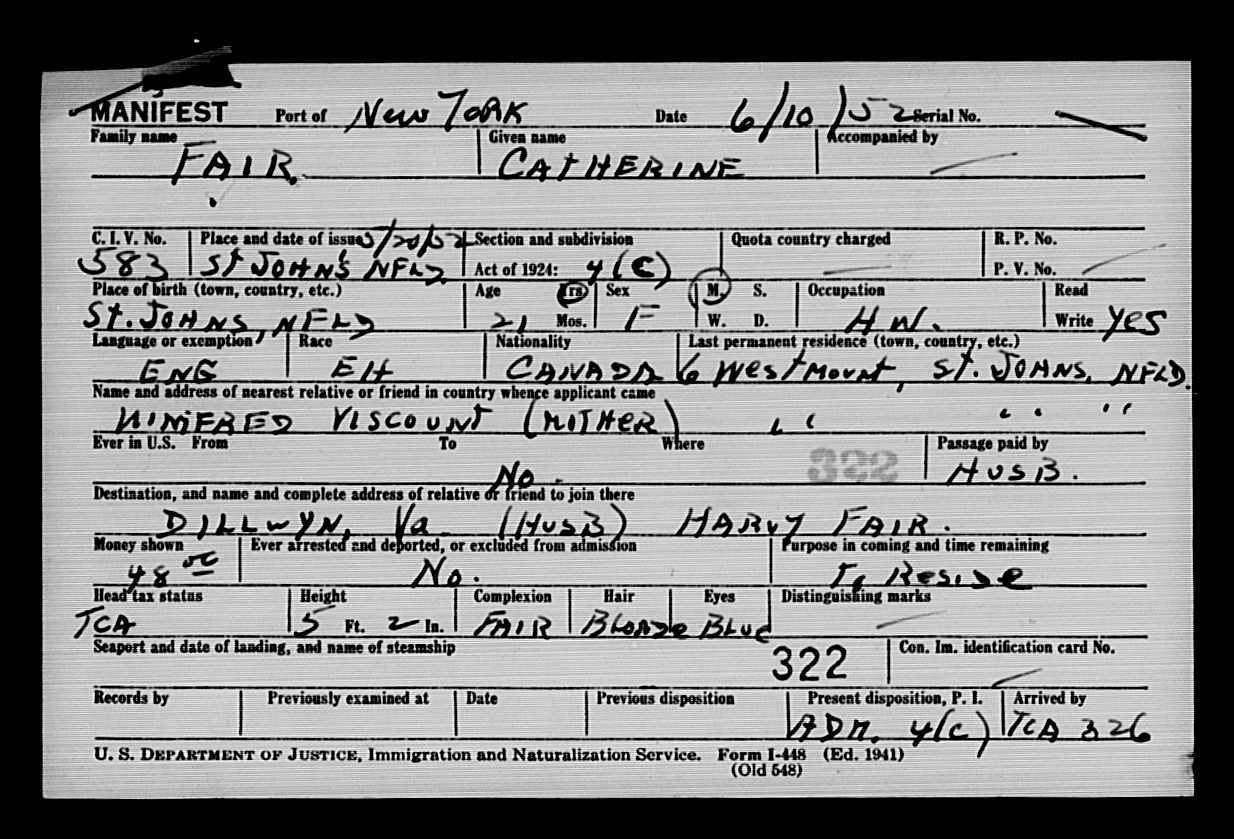 MANIFEST Port of New York Date 6/10/52 Serial No.
Family name Given name Accompanied by
FAIR. CATHERINE
C. I. V. No. Place and date of issue 5/20/52 Section and subdivision Quota country charged R. P. No.
583 St JOHN'S NFLD Act of 1924: 4(C) P. V. No.
Place of birth (town, country, etc.) Age Yrs Sex M. S. Occupation Read
St. JOHNS, NFLD 21 Mos. F W. D. HW. Write Yes
Language or exemption Race Nationality Last permanent residence (town, country, etc.)
ENG EH CANADA 6 Westmount, St. JOHNS, NFLD.
Name and address of nearest relative or friend in country whence applicant came
WINIFRED VISCOUNT (MOTHER) " " "
Ever in U.S. From To Where Passage paid by
No. 322 HUSB.
Destination, and name and complete address of relative or friend to join there
DILLWYN, Va (HUSB) HARVY FAIR.
Money shown Ever arrested and deported, or excluded from admission Purpose in coming and time remaining
48 00 No. To Reside
Head tax status Height Complexion Hair Eyes Distinguishing marks
TCA 5 Ft. 2 In. FAIR Blonde Blue
Seaport and date of landing, and name of steamship 322 Con. Im. identification card No.
Records by Previously examined at Date Previous disposition Present disposition, P. I. Arrived by
ADM. 4(c) TCA 326
U. S. DEPARTMENT OF JUSTICE, Immigration and Naturalization Service. Form I-448 (Ed. 1941)
(Old 548)